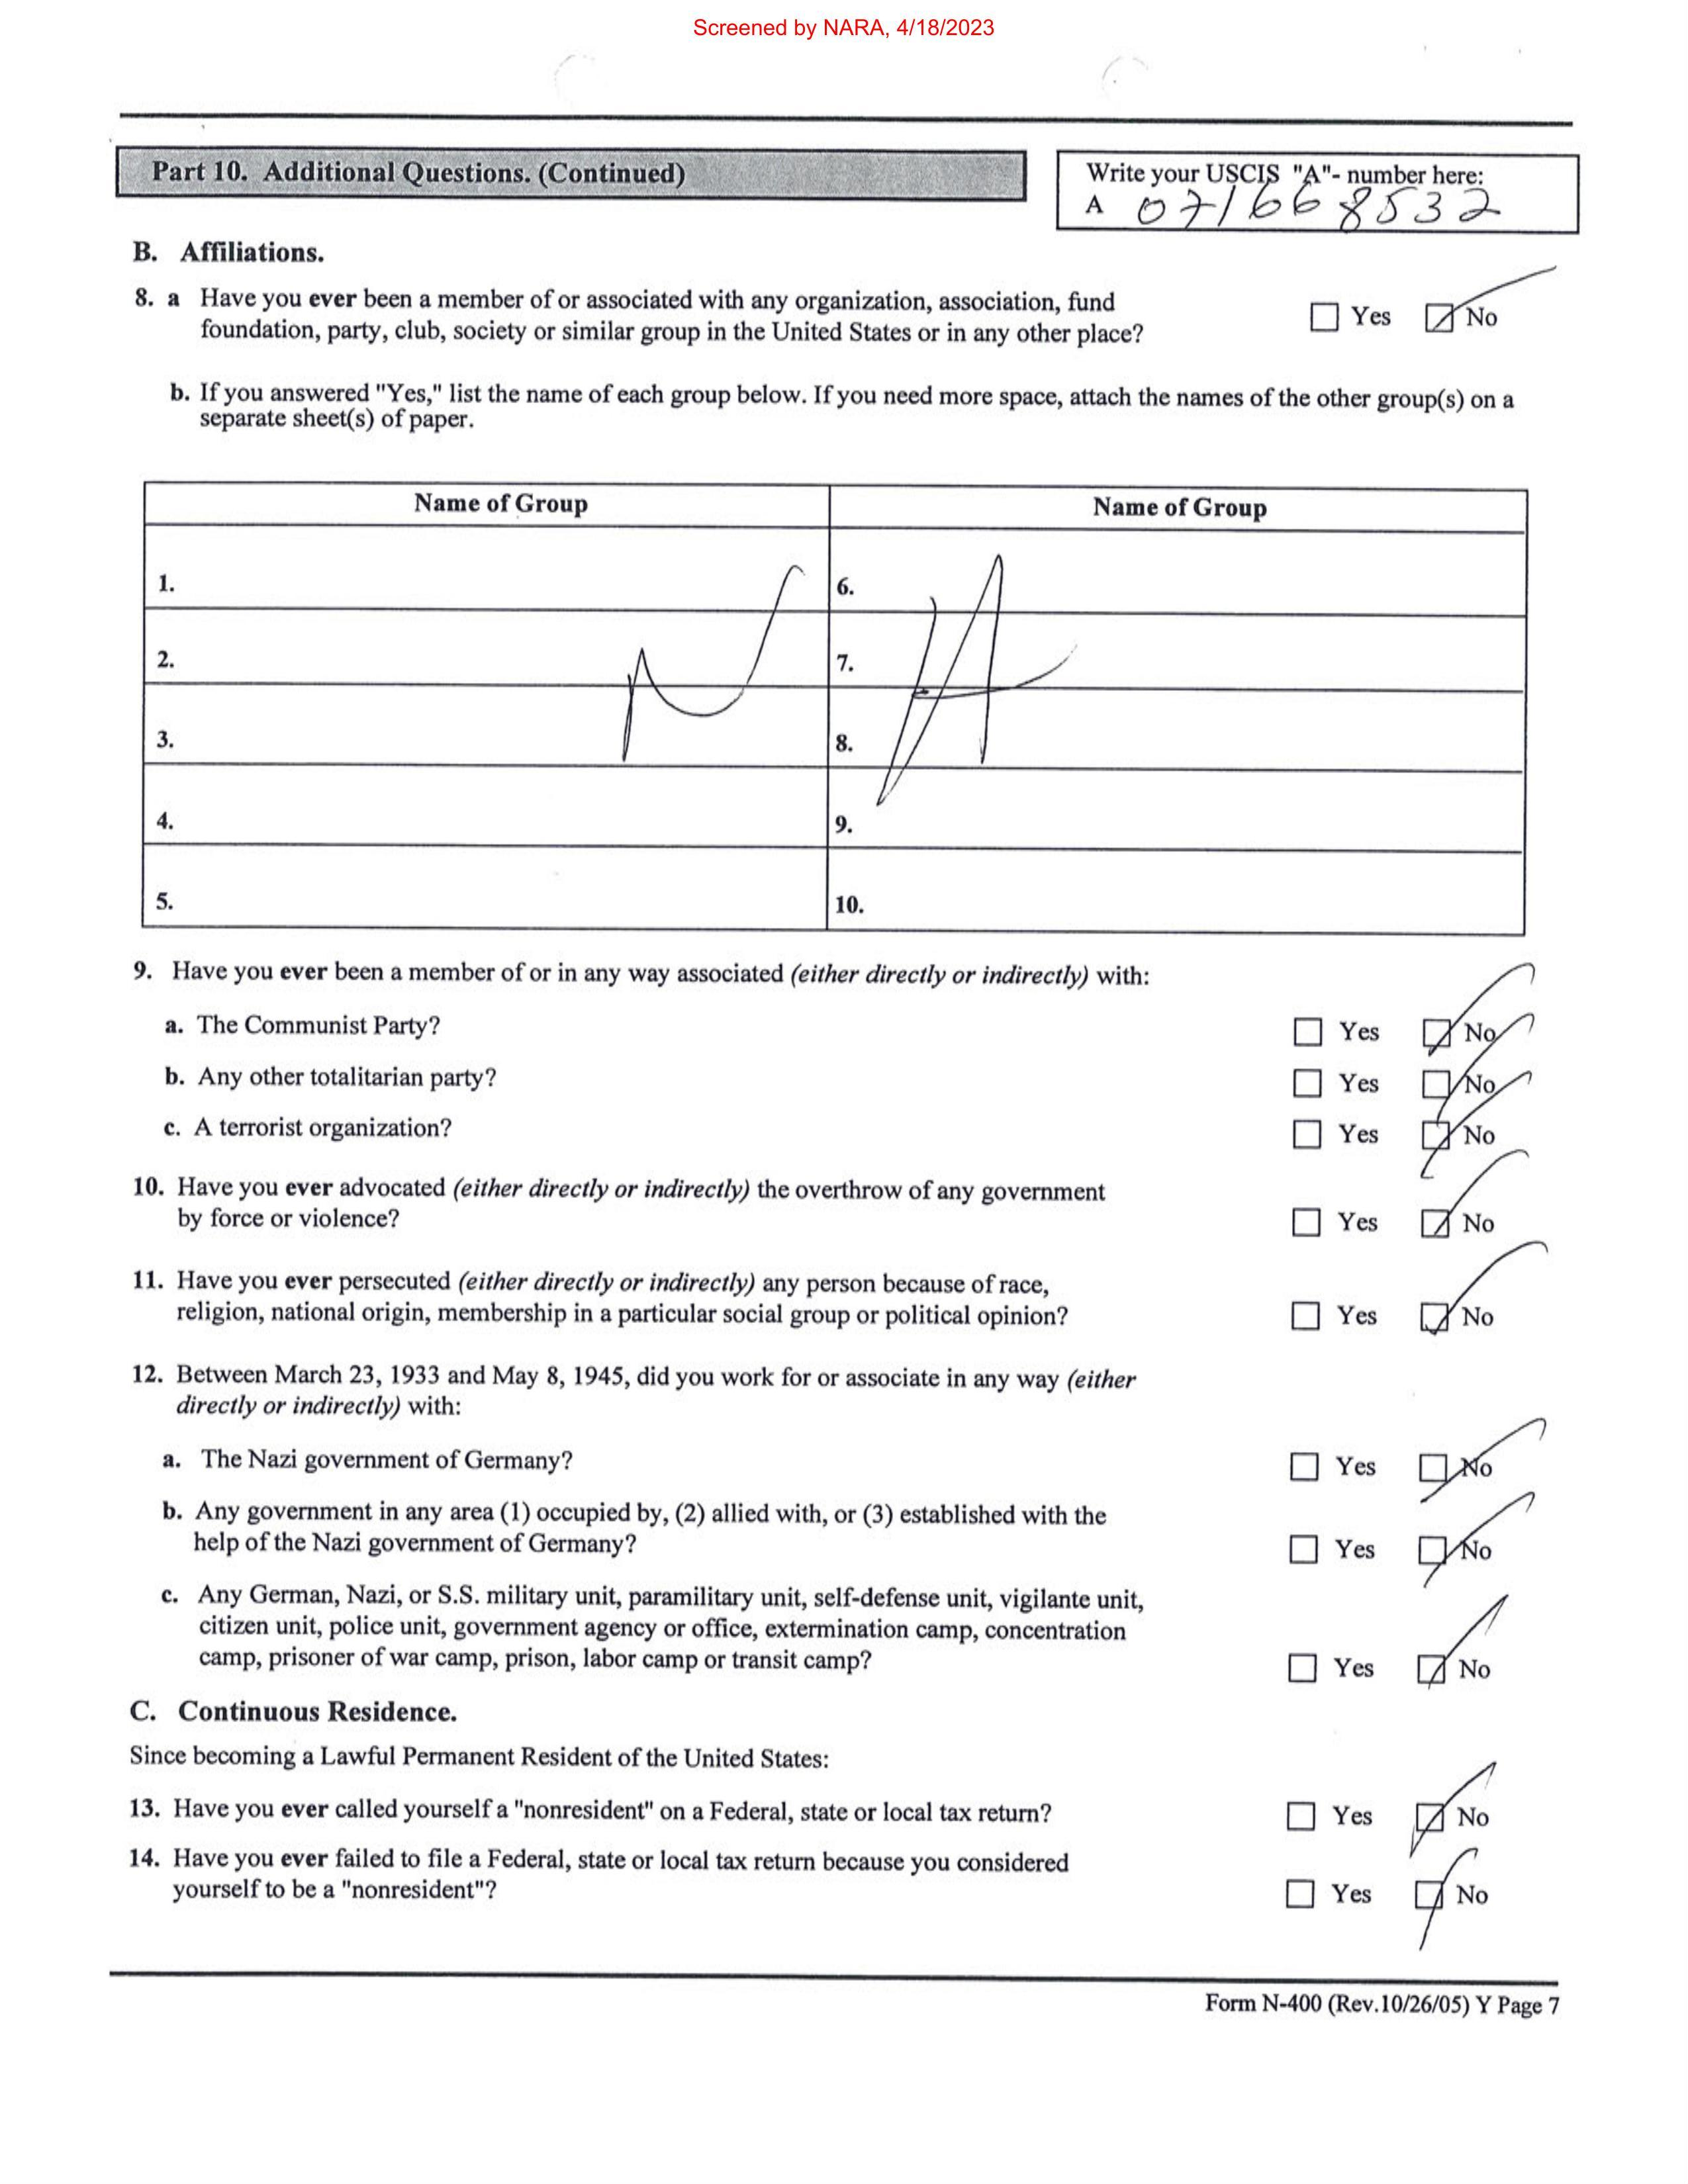 Screened by NARA, 4/18/2023
Part 10. Additional Questions. (Continued)
Write your USCIS "A"- number here:
A 071668532
B. Affiliations.
8. a Have you ever been a member of or associated with any organization, association, fund
foundation, party, club, society or similar group in the United States or in any other place?
Yes No
b. If you answered "Yes," list the name of each group below. If you need more space, attach the names of the other group(s) on a
separate sheet(s) of paper.
Name of Group Name of Group
1. 6.
2. 7.
N/A
3. 8.
4. 9.
5. 10.
9. Have you ever been a member of or in any way associated (either directly or indirectly) with:
a. The Communist Party? Yes No
b. Any other totalitarian party? Yes No
c. A terrorist organization? Yes No
10. Have you ever advocated (either directly or indirectly) the overthrow of any government
by force or violence? Yes No
11. Have you ever persecuted (either directly or indirectly) any person because of race,
religion, national origin, membership in a particular social group or political opinion? Yes No
12. Between March 23, 1933 and May 8, 1945, did you work for or associate in any way (either
directly or indirectly) with:
a. The Nazi government of Germany? Yes No
b. Any government in any area (1) occupied by, (2) allied with, or (3) established with the
help of the Nazi government of Germany? Yes No
c. Any German, Nazi, or S.S. military unit, paramilitary unit, self-defense unit, vigilante unit,
citizen unit, police unit, government agency or office, extermination camp, concentration
camp, prisoner of war camp, prison, labor camp or transit camp? Yes No
C. Continuous Residence.
Since becoming a Lawful Permanent Resident of the United States:
13. Have you ever called yourself a "nonresident" on a Federal, state or local tax return? Yes No
14. Have you ever failed to file a Federal, state or local tax return because you considered
yourself to be a "nonresident"? Yes No
Form N-400 (Rev.10/26/05) Y Page 7